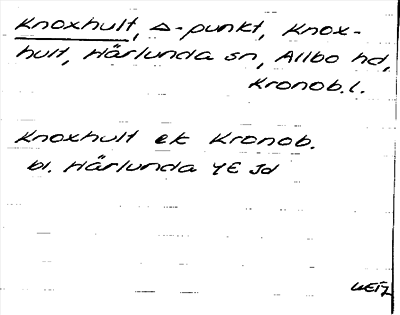 Knoxhult, Δ-punkt, Knox-
hult, Härlunda sn, Allbo hd,
Kronob.l.
Knoxhult ek Kronob.
bl. Härlunda 4E Jd